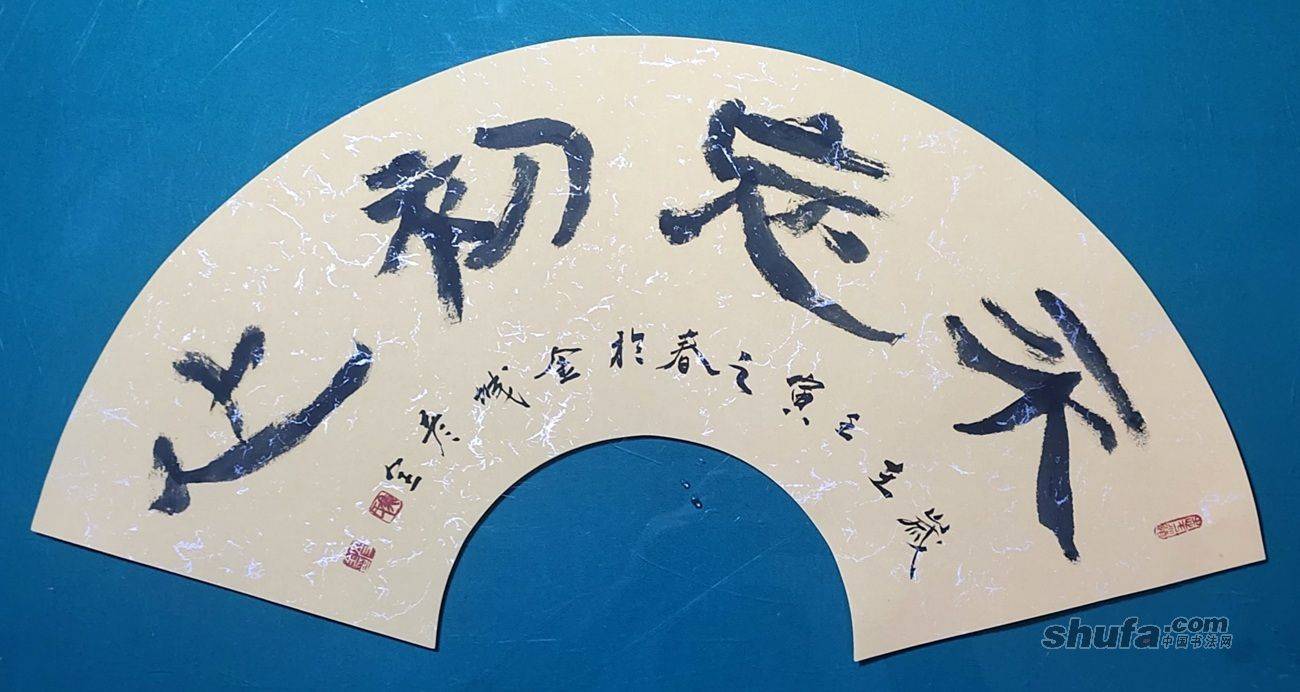 不忘初心
歲在壬寅之春於金城
shufa.com
中国书法网